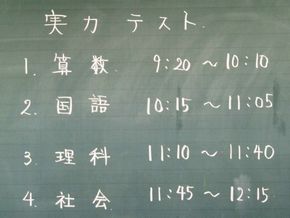 実力テスト
1. 算数 9:20 〜 10:10
2. 国語 10:15 〜 11:05
3. 理科 11:10 〜 11:40
4. 社会 11:45 〜 12:15